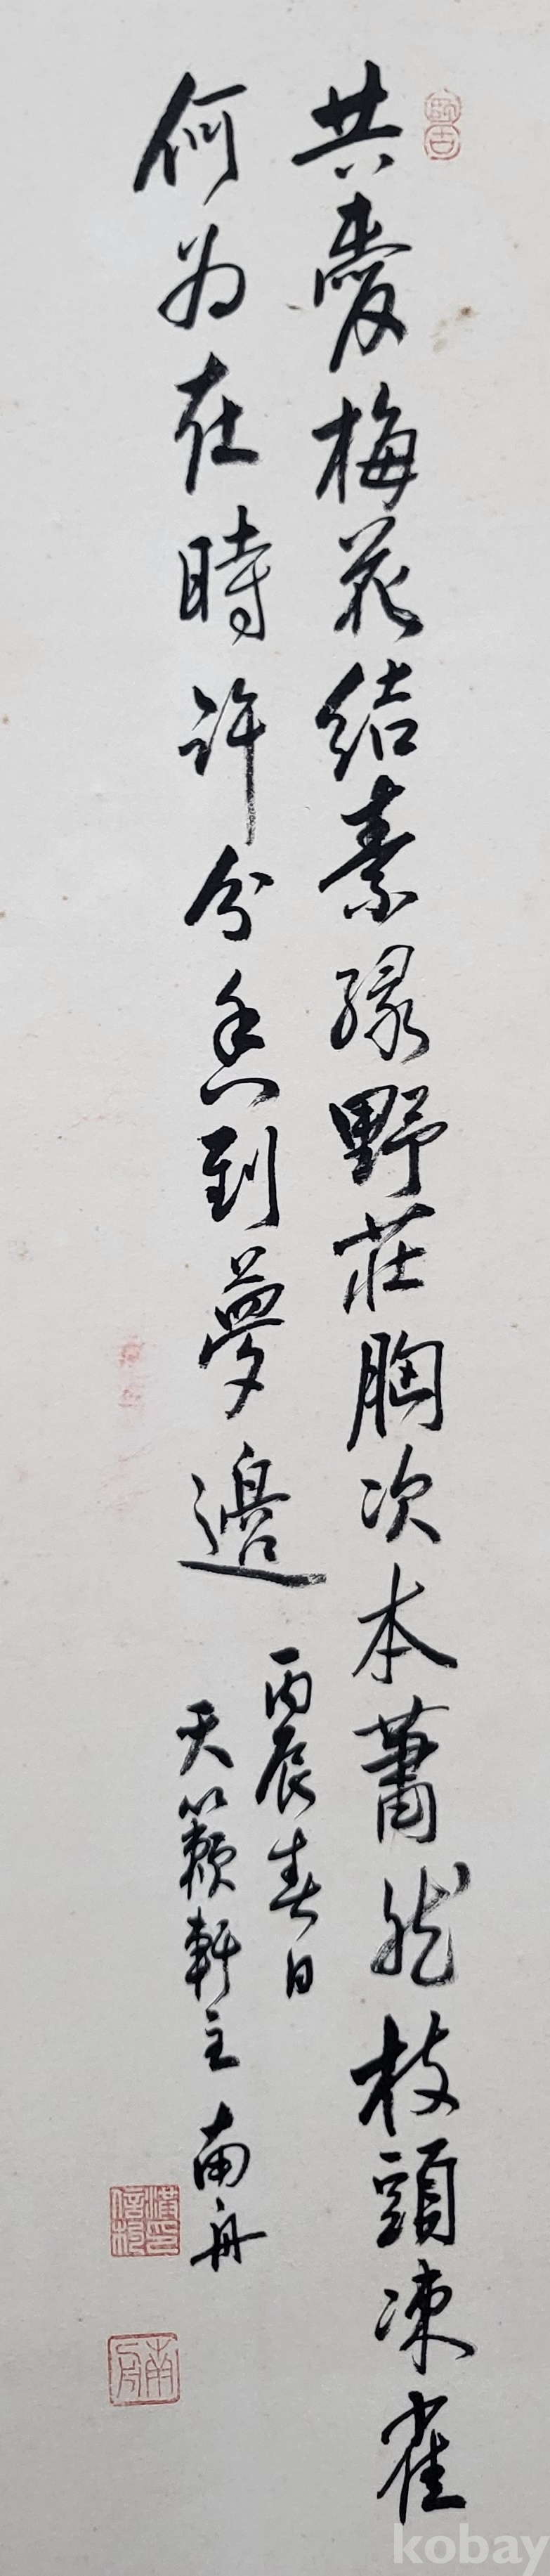 共愛梅花結素緣野莊胸次本蕭然枝頭凍雀
何為在時許分香到夢邊
丙辰春日
天籟軒主南舟
南舟
kobay